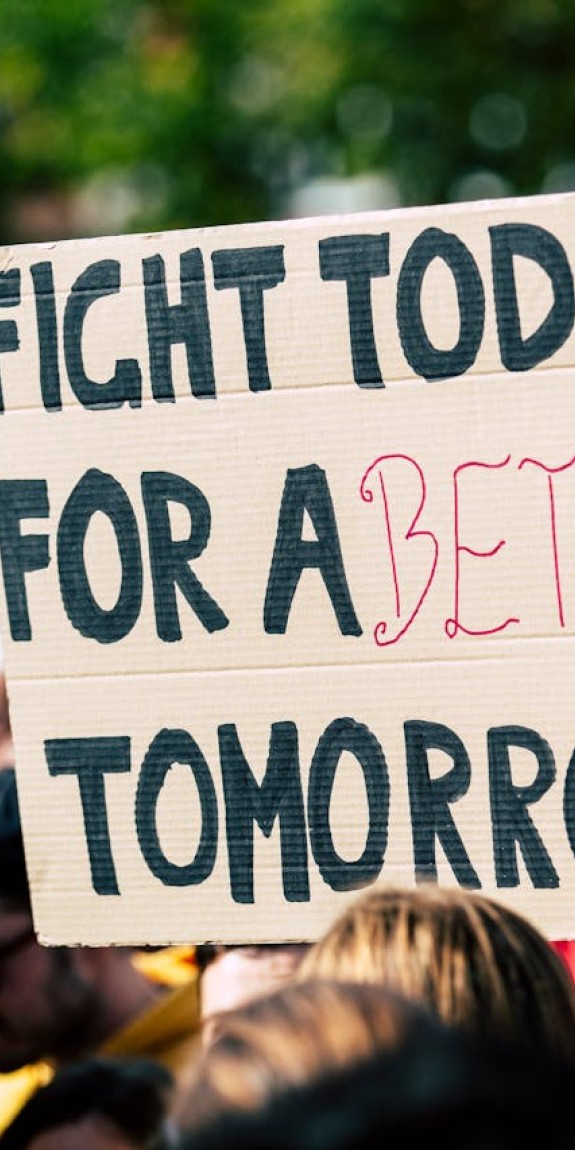 FIGHT TOD
FOR A BET
TOMORRO